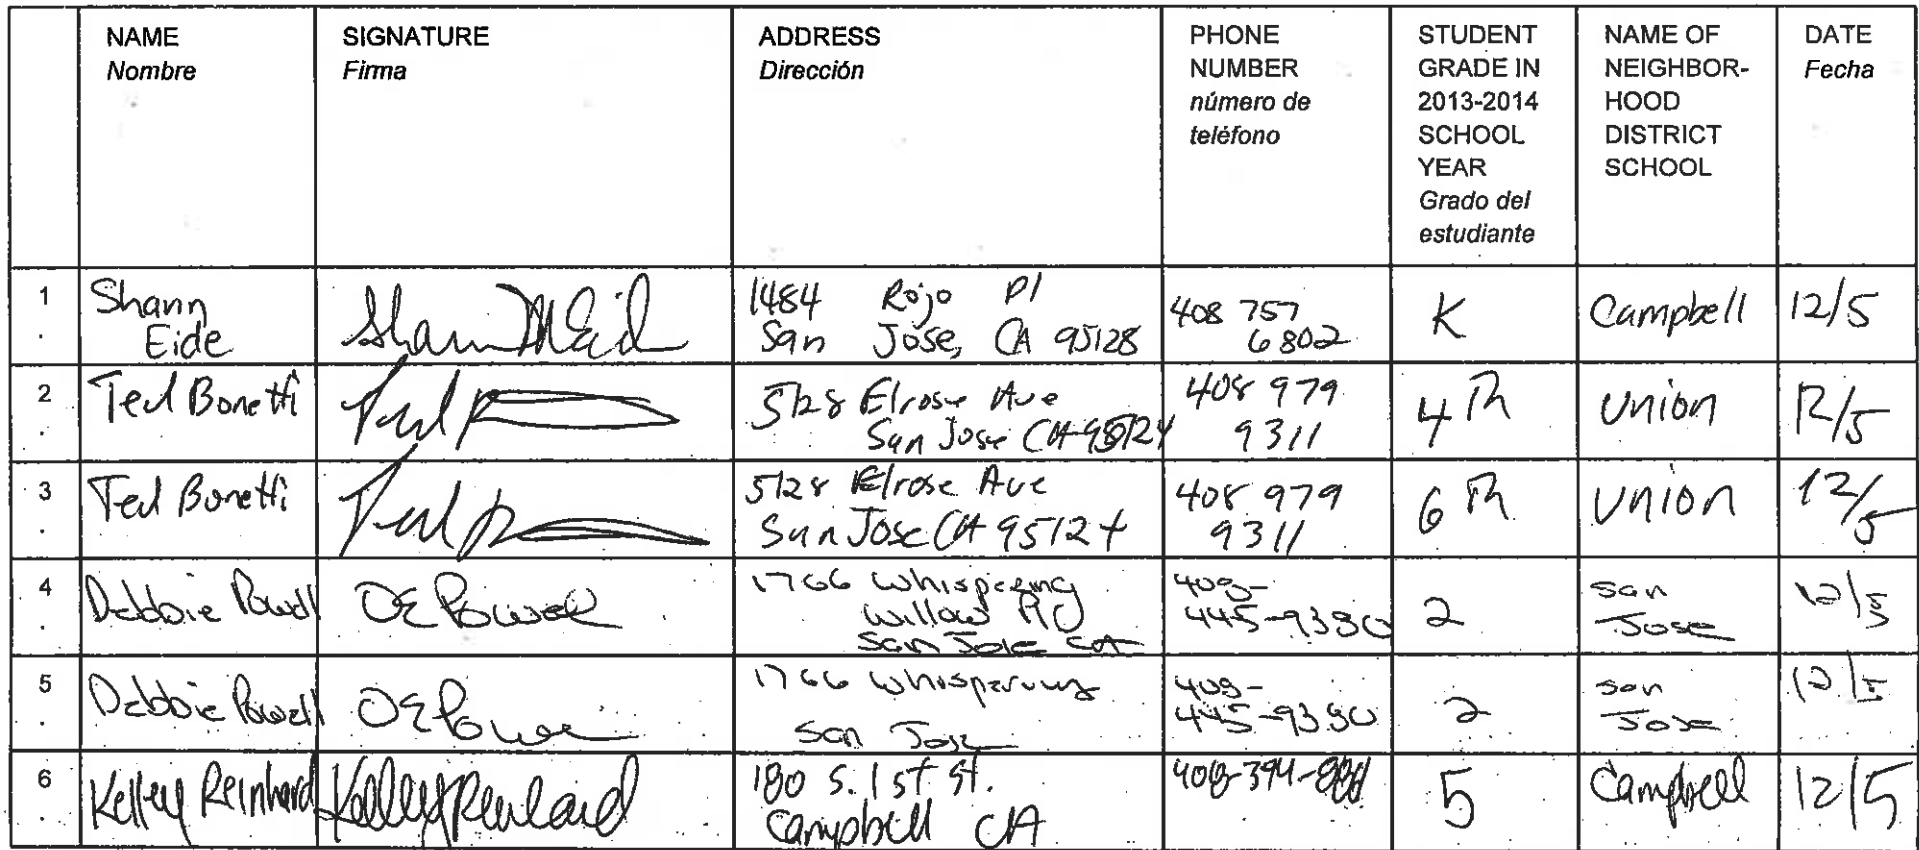 NAME
Nombre
SIGNATURE
Firma
ADDRESS
Dirección
PHONE
NUMBER
número de
teléfono
STUDENT
GRADE IN
2013-2014
SCHOOL
YEAR
Grado del
estudiante
NAME OF
NEIGHBOR-
HOOD
DISTRICT
SCHOOL
DATE
Fecha
1.
Shann
Eide
1484 Rojo Pl
San Jose, CA 95128
408 757
6802
K
Campbell
12/5
2.
Ted Bonetti
5128 Elrose Ave
San Jose CA 95124
408 979
9311
4th
Union
12/5
3.
Ted Bonetti
5128 Elrose Ave
San Jose CA 95124
408 979
9311
6th
Union
12/5
4.
Debbie Powell
DE Powell
1766 Whispering
Willow
San Jose CA
408-
2
San
Jose
12/5
5.
Debbie Powell
DE Powell
1766 Whispering
San Jose
408-
2
San
Jose
12/5
6.
Kelley Reinhard
Kelley Reinhard
180 S. 1st St.
Campbell CA
5
Campbell
12/5